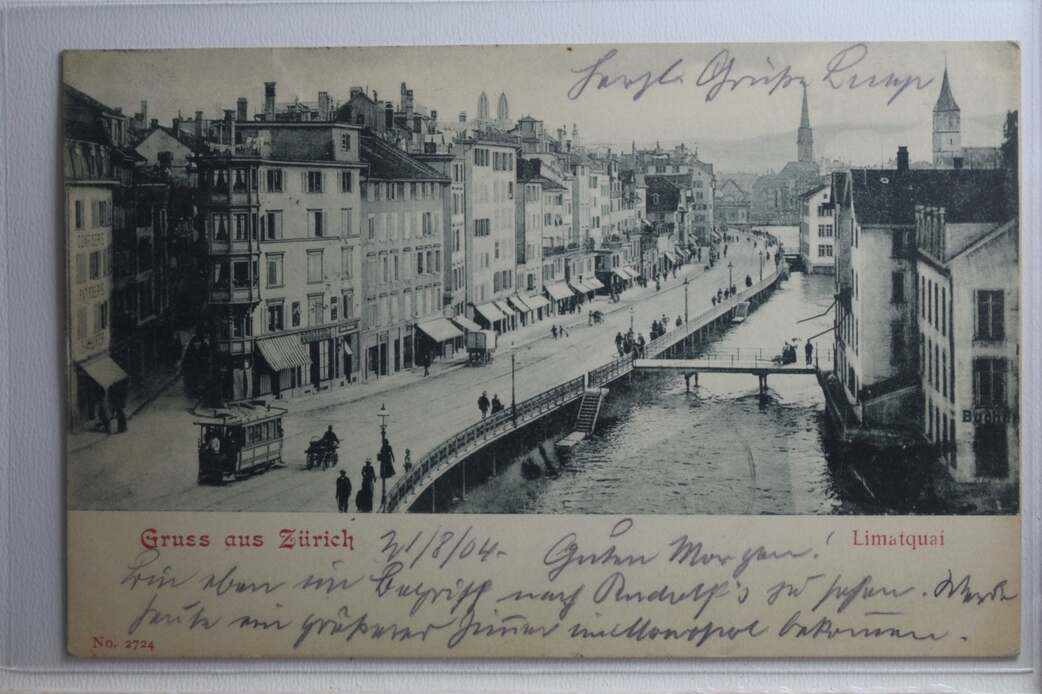 Herzl. Grüße
CONFISERIE
PATISSERIE
Gruss aus Zürich 21/8/04. Guten Morgen! Limatquai
Bin eben im Begriff nach Rudolf's zu sehen. Werde
heute ein größeres Zimmer im Monopol bekommen.
No. 2724